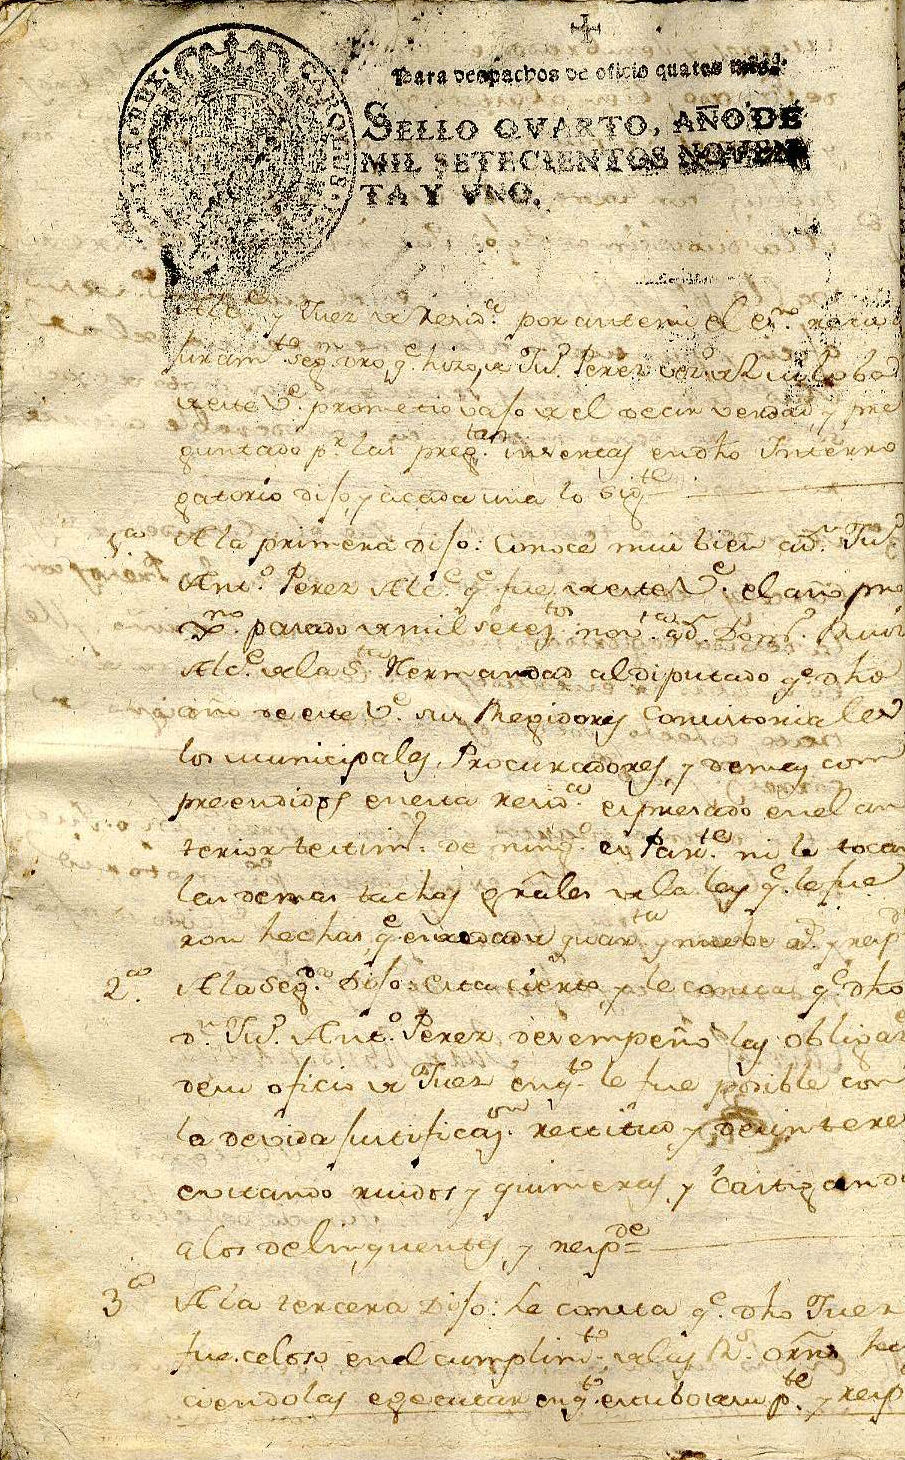 Para despachos de oficio quatro mrs.
SELLO QVARTO, AÑO DE
MIL SETECIENTOS NOVEN
TA Y VNO.
HIAR·REX·
CAROLUS·
y Juez de Resid.ª por ante mi el es.no
juram.to seg.n dro. q.e hizo, Ju.n Perez
de este V.e prometio vajo de el decir verdad, y pre
guntado p.r las preg.tas insertas en dho Interro
gatorio dijo, y a cada una lo sig.te
1.ª A la primera dijo: Conoce mui bien a d.n Ju.n
Ant.o Perez Alc.e q.e fue de este V.e el año pro
x.mo pasado de mil setez.tos nov.ta a d.n
Alc.e de la S.ta Hermandad al diputado q.e dho
año de este V.e sus Regidores Consistoriales
los municipales, Procuradores, y demas com
preendidos en esta Resid.ª espresado en el an
terior testim.o de ning.o es Par.te ni le tocan
las demas tachas grãles de la ley q.e le fue
ron hechas, q.e es de edad de quar.ta y nuebe a.s y resp.de
2.ª A la seg.da Dijo: esta cierto, y le consta q.e dho
d.n Ju.n Ant.o Perez desempeño las obligac
de su oficio de Juez en q.to le fue posible con
la devida justificaz.on rectitud y desinteres
evitando ruidos y quimeras, y castigando
a los delinquentes, y resp.de
3.ª A la tercera Dijo: le consta q.e dho Juez
fue celoso en el cumplim.to de las R.s orñs ha
ciendolas egecutar en q.to estubo de su p.te y resp